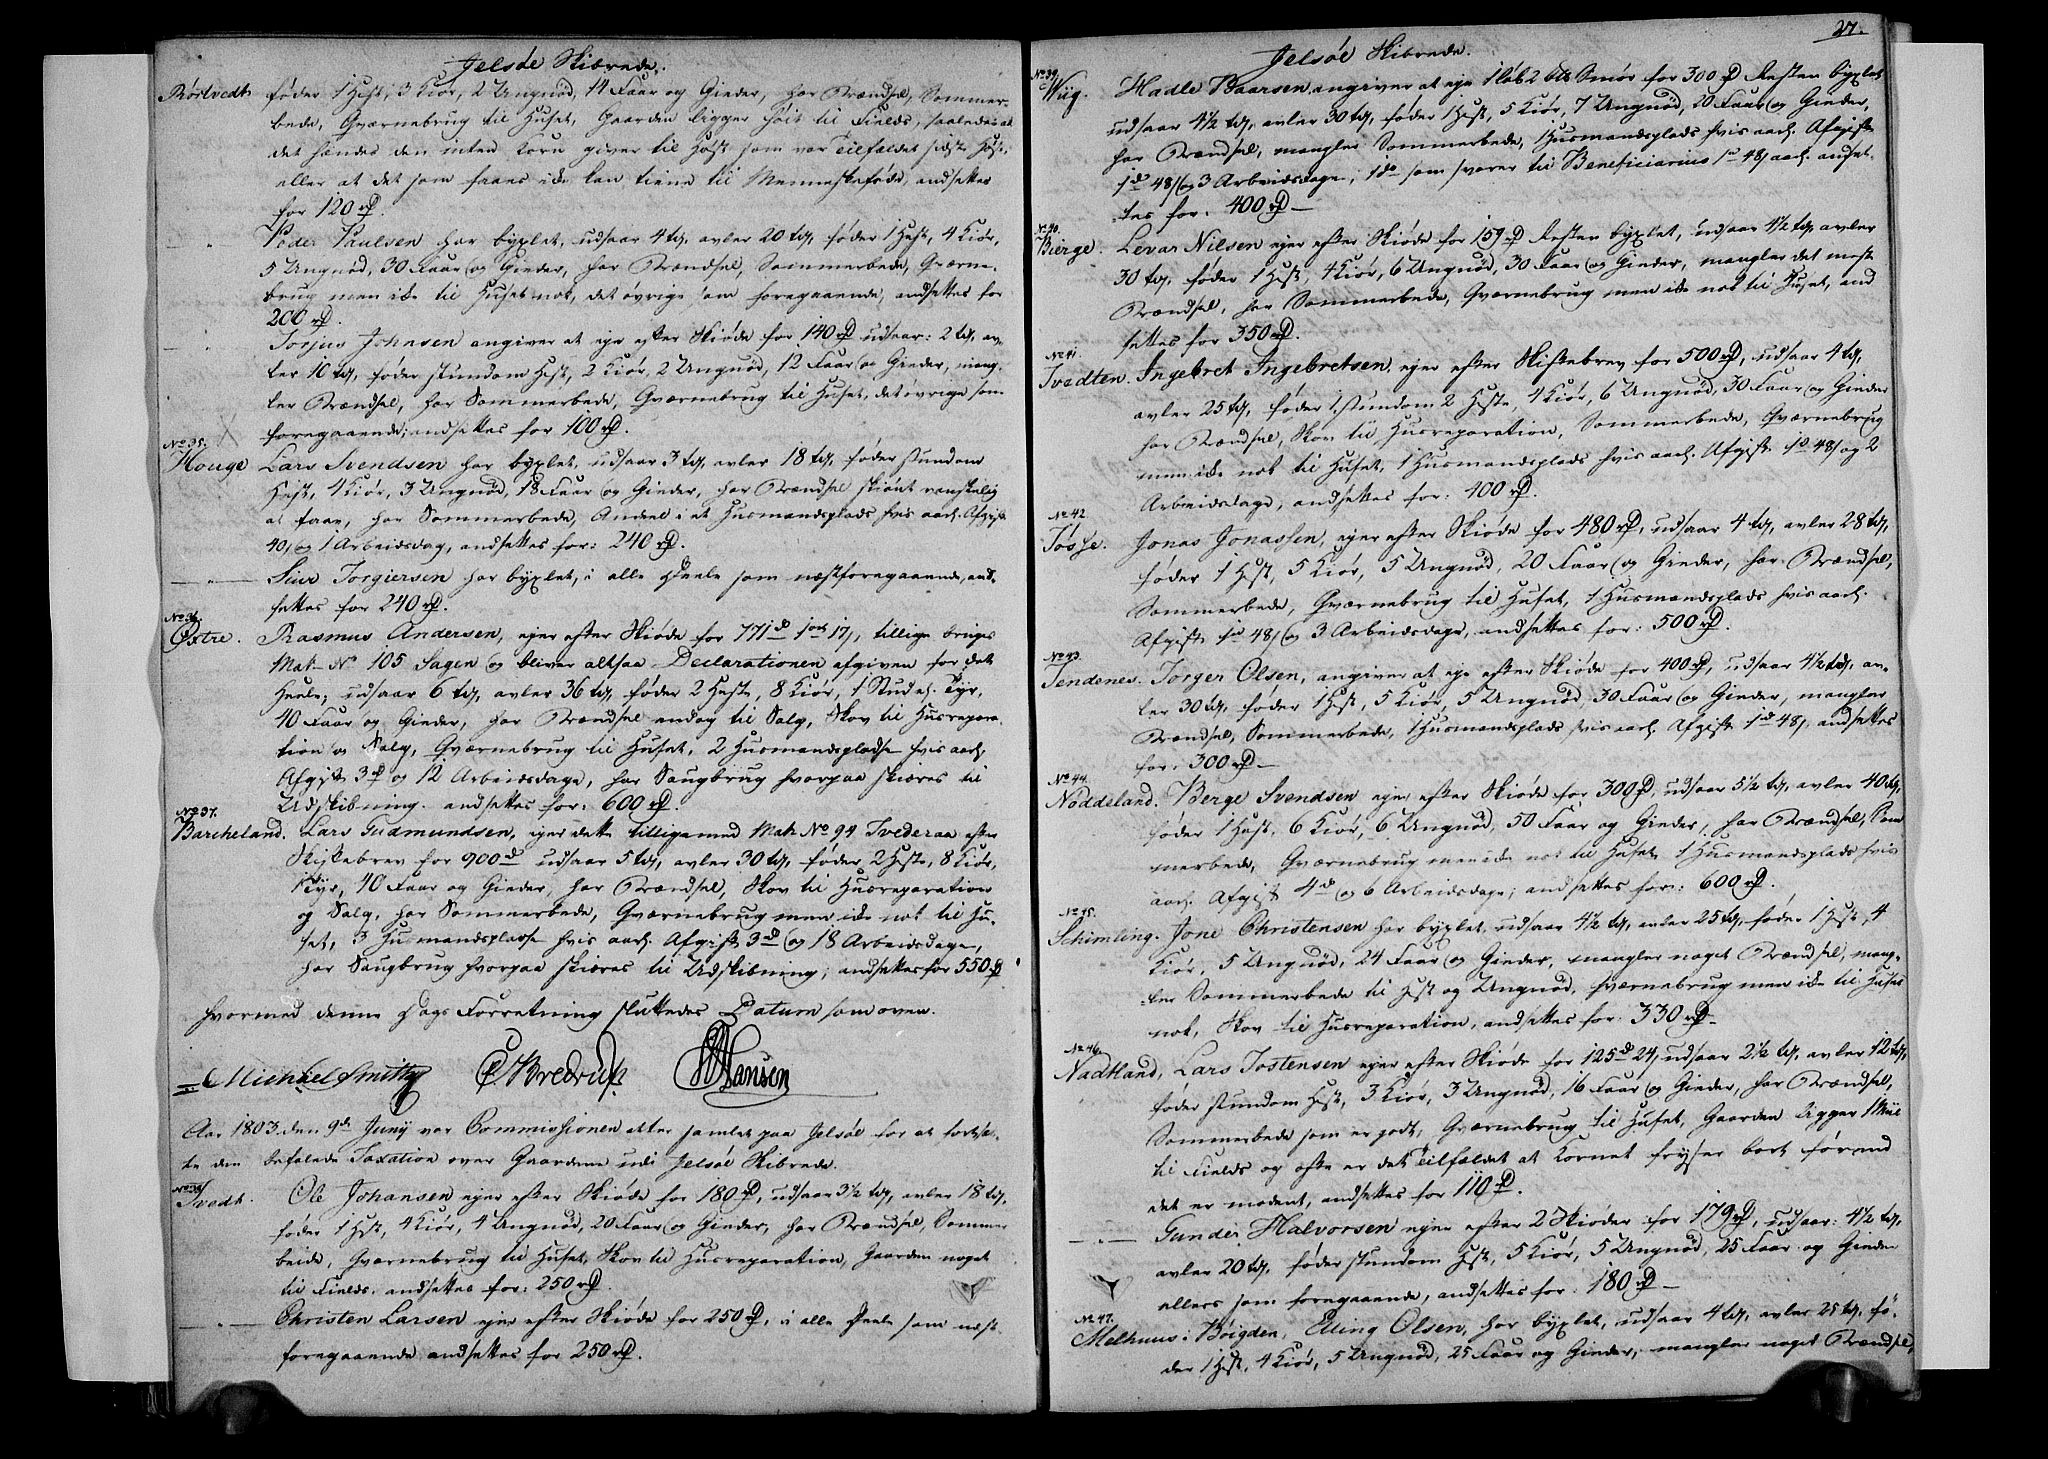 Jelsøe Skibrede.
Rørtvedt føder 1 Hest, 3 Kiør, 2 Ungnød, 14 Faar og Gieder, har Brændsel, Sommer-
bede, Qværnebrug til Huset, Gaarden ligger høit til Fields, saaledes at
det hændes den inten Korn giver til Høst som var Tilfældet sidste Høst,
eller at det som faaes ikke kan tiene til Menneskeføde, andsettes
for 120 rd.
— " Peder Paulsen har byxlet, udsaar 4 td, avler 20 td, føder 1 Hest, 4 Kiør,
5 Ungnød, 30 Faar og Gieder, har Brændsel, Sommerbede, Qværne-
brug men ike til Huset nok, det øvrige som foregaaende, andsettes for
200 rd.
— " Torjus Johnsen angiver at eje efter Skiøde for 140 rd udsaar: 2 td, av-
ler 10 td, føder stundom Hest, 2 Kiør, 2 Ungnød, 12 Faar og Gieder, mang-
ler Brændsel, har Sommerbede, Qværnebrug til Huset, det øvrige som
foregaaende; andsettes for 100 rd.
No 35.
Houge Lars Svendsen har byxlet, udsaar 3 td, avler 18 td, føder stundom
Hest, 4 Kiør, 3 Ungnød, 18 Faar og Gieder, har Brændsel skiønt vanskelig
at faae, har Sommerbede, Andeel i et Husmandsplads hvis aarl. Afgift
40 s og 1 Arbeidsdag, andsettes for: 240 rd.
— " — Siur Torgiersen har byxlet, i alle Deele som næstforegaaende, and-
settes for 240 rd.
No 36.
Østre. Rasmus Andersen, ejer efter Skiøde for 771 d 1 ort 17 s, tillige bruges
Mat: No 105 Sagen og bliver altsaa Declarationen afgiven for det
Heele; udsaar 6 td, avler 36 td, føder 2 Heste, 8 Kiør, 1 Stud el. Tyr,
40 Faar og Gieder, har Brændsel endog til Salg, Skov til Husrepara-
tion og Salg, Qværnebrug til Huset, 2 Husmandspladse hvis aarl.
Afgift 3 d og 12 Arbeidsdage, har Saugbrug hvorpaa skiæres til
Udskibning. andsettes for: 600 rd.
No 37.
Barcheland. Lars Gudmundsen, ejer dette tilligemed Mat: No 94 Tvederaa efter
Skiftebrev for 900 d udsaar 5 td, avler 30 td, føder 2 Heste, 8 Kiør,
1 Tyr, 40 Faar og Gieder, har Brændsel, Skov til Husreparation
og Salg, har Sommerbede, Qværnebrug men ike nok til Hu-
set, 3 Husmandspladse hvis aarl. Afgift 3 d og 18 Arbeidsdage,
har Saugbrug hvorpaa skiæres til Udskibning; andsettes for 550 rd
hvormed denne Dags Forretning sluttedes Datum som oven.
Michael Smith C Bredrup Hansen
Aar 1803 den 9de Juny var Commissionen atter samlet paa Jelsøe for at fortsæt-
te den befalede Taxation over Gaardene udi Jelsøe Skibrede.
No 38
Tvedt. Ole Johansen ejer efter Skiøde for 180 rd, udsaar 3½ td, avler 18 td,
føder 1 Hest, 4 Kiør, 4 Ungnød, 20 Faar og Gieder, har Brændsel, Sommer-
beide, Qværnebrug til Huset, Skov til Husreparation, Gaarden noget
til Fields. andsettes for: 250 rd.
— " — Christen Larsen ejer efter Skiøde for 250 rd, i alle Deele som næst-
foregaaende andsettes for 250 rd.
27.
Jelsøe Skibrede.
No 39.
Wiig. Hadle Baarsen, angiver at eje 1 løb 2 bte Smør for 300 rd Resten byxlet
udsaar 4½ td, avler 30 td, føder 1 Hest, 5 Kiør, 7 Ungnød, 20 Faar og Gieder,
har Brændsel, mangler Sommerbede, 1 Husmandsplads hvis aarl. Afgift
1 d 48 s og 3 Arbeidsdage, 1 do som svarer til Beneficiarius 1 d 48 s aarl. andset-
tes for: 400 rd —
No 40.
Bierge. Levar Nilsen ejer efter Skiøde for 159 rd Resten byxlet, udsaar 4½ td, avler
30 td, føder 1 Hest, 4 Kiør, 6 Ungnød, 30 Faar og Gieder, mangler det meste
Brændsel, har Sommerbede, Qværnebrug men ike nok til Huset, and-
settes for 350 rd.
No 41.
Tvedten. Ingebret Ingebretsen, ejer efter Skiftebrev for 500 rd, udsaar 4 td,
avler 25 td, føder stundom 2 Heste, 4 Kiør, 6 Ungnød, 30 Faar og Gieder
har Brændsel, Skov til Husreparation, Sommerbede, Qværnebrug
men ike nok til Huset, 1 Husmandsplads hvis aarl. Afgift 1 d 48 s og 2
Arbeidsdage, andsettes for: 400 rd.
No 42.
Tøsse. Jonas Jonassen, ejer efter Skiøde for 480 rd, udsaar 4 td, avler 28 td,
føder 1 Hest, 5 Kiør, 5 Ungnød, 20 Faar og Gieder, har Brændsel,
Sommerbede, Qværnebrug til Huset, 1 Husmandsplads hvis aarl.
Afgift 1 d 48 s og 3 Arbeidsdage, andsettes for: 500 rd.
No 43.
Tendenes. Torger Olsen, angiver at eje efter Skiøde for 400 rd, udsaar 4½ td, av-
ler 30 td, føder 1 Hest, 5 Kiør, 5 Ungnød, 30 Faar og Gieder, mangler
Brændsel, Sommerbede, 1 Husmandsplads hvis aarl. Afgift 1 d 48 s, andsettes
for: 300 rd —
No 44.
Nøddeland. Berge Svendsen ejer efter Skiøde for 300 rd, udsaar 5½ td, avler 40 td,
føder 1 Hest, 6 Kiør, 6 Ungnød, 50 Faar og Gieder, har Brændsel, Som-
merbede, Qværnebrug men ike nok til Huset 1 Husmandsplads hvis
aarl. Afgift 4 d og 6 Arbeidsdage; andsettes for: 600 rd.
No 45.
Schimling. Jone Christensen har byxlet, udsaar 4½ td, avler 25 td, føder 1 Hest, 4
Kiør, 5 Ungnød, 24 Faar og Gieder, mangler noget Brændsel, mang-
ler Sommerbede til Hest og Ungnød, Qværnebrug men ike til Huset
nok, Skov til Husreparation, andsettes for: 330 rd —
No 46.
Nadtland, Lars Tostensen ejer efter Skiøde for 125 d 24 s, udsaar 2½ td, avler 12 td,
føder stundom Hest, 3 Kiør, 3 Ungnød, 16 Faar og Gieder, har Brændsel,
Sommerbede som er godt, Qværnebrug til Huset, Gaarden ligger 1 Miil
til Fields og ofte er det Tilfældet at Kornet fryser bort førend
det er modent, andsettes for 110 rd.
— " — Gunder Halvorsen ejer efter 2 Skiøder for 179 rd, udsaar: 4½ td,
avler 20 td, føder stundom Hest, 5 Kiør, 5 Ungnød, 25 Faar og Gieder
ellers som foregaaende, andsettes for: 180 rd —
No 47.
Melhuus i Bøigden, Eling Olsen, har byxlet, udsaar 4 td, avler 25 td, fø-
der 1 Hest, 4 Kiør, 5 Ungnød, 25 Faar og Gieder, mangler noget Brændsel,